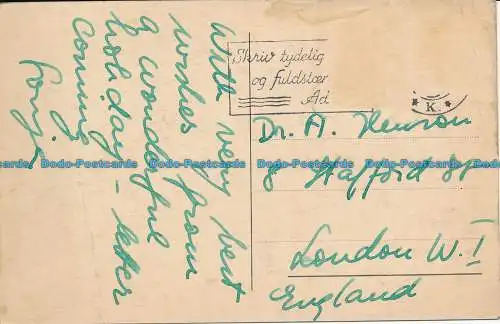 With very best
wishes from
a wonderful
holiday – letter
coming
Skriv tydelig
og fuldstær
Ad
K.
Dr. A. Henson
8 Stafford St
London W. I
England
Dodo-Postcards Dodo-Postcards Dodo-Postcards Dodo-Postcards Dodo-Postcards